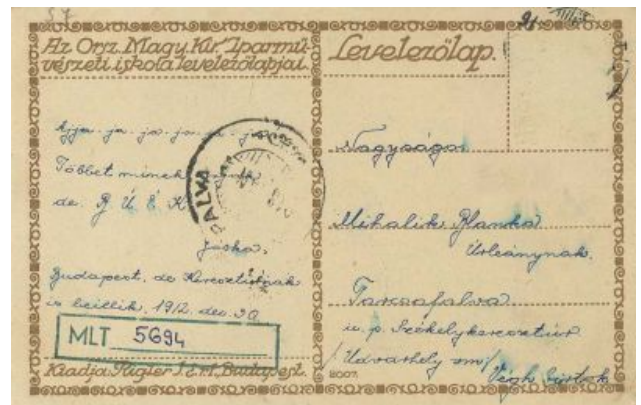 Az Orsz. Magy. Kir. Iparmű-
vészeti iskola levelezőlapjai.
Levelezőlap.
ja. ja. ja.
Többet minek
de. B Ú É K
Jóska.
Budapest. de Keresztúrnak
is beillik. 1912. dec. 30.
MLT 5694
Kiadja Rigler r.t. Budapest.
2007.
PALVA
Nagyságos
Mihalik Blanka
Úrleánynak.
Tarcsafalva
u. p. Székelykeresztúr
/Udvarhely vm/